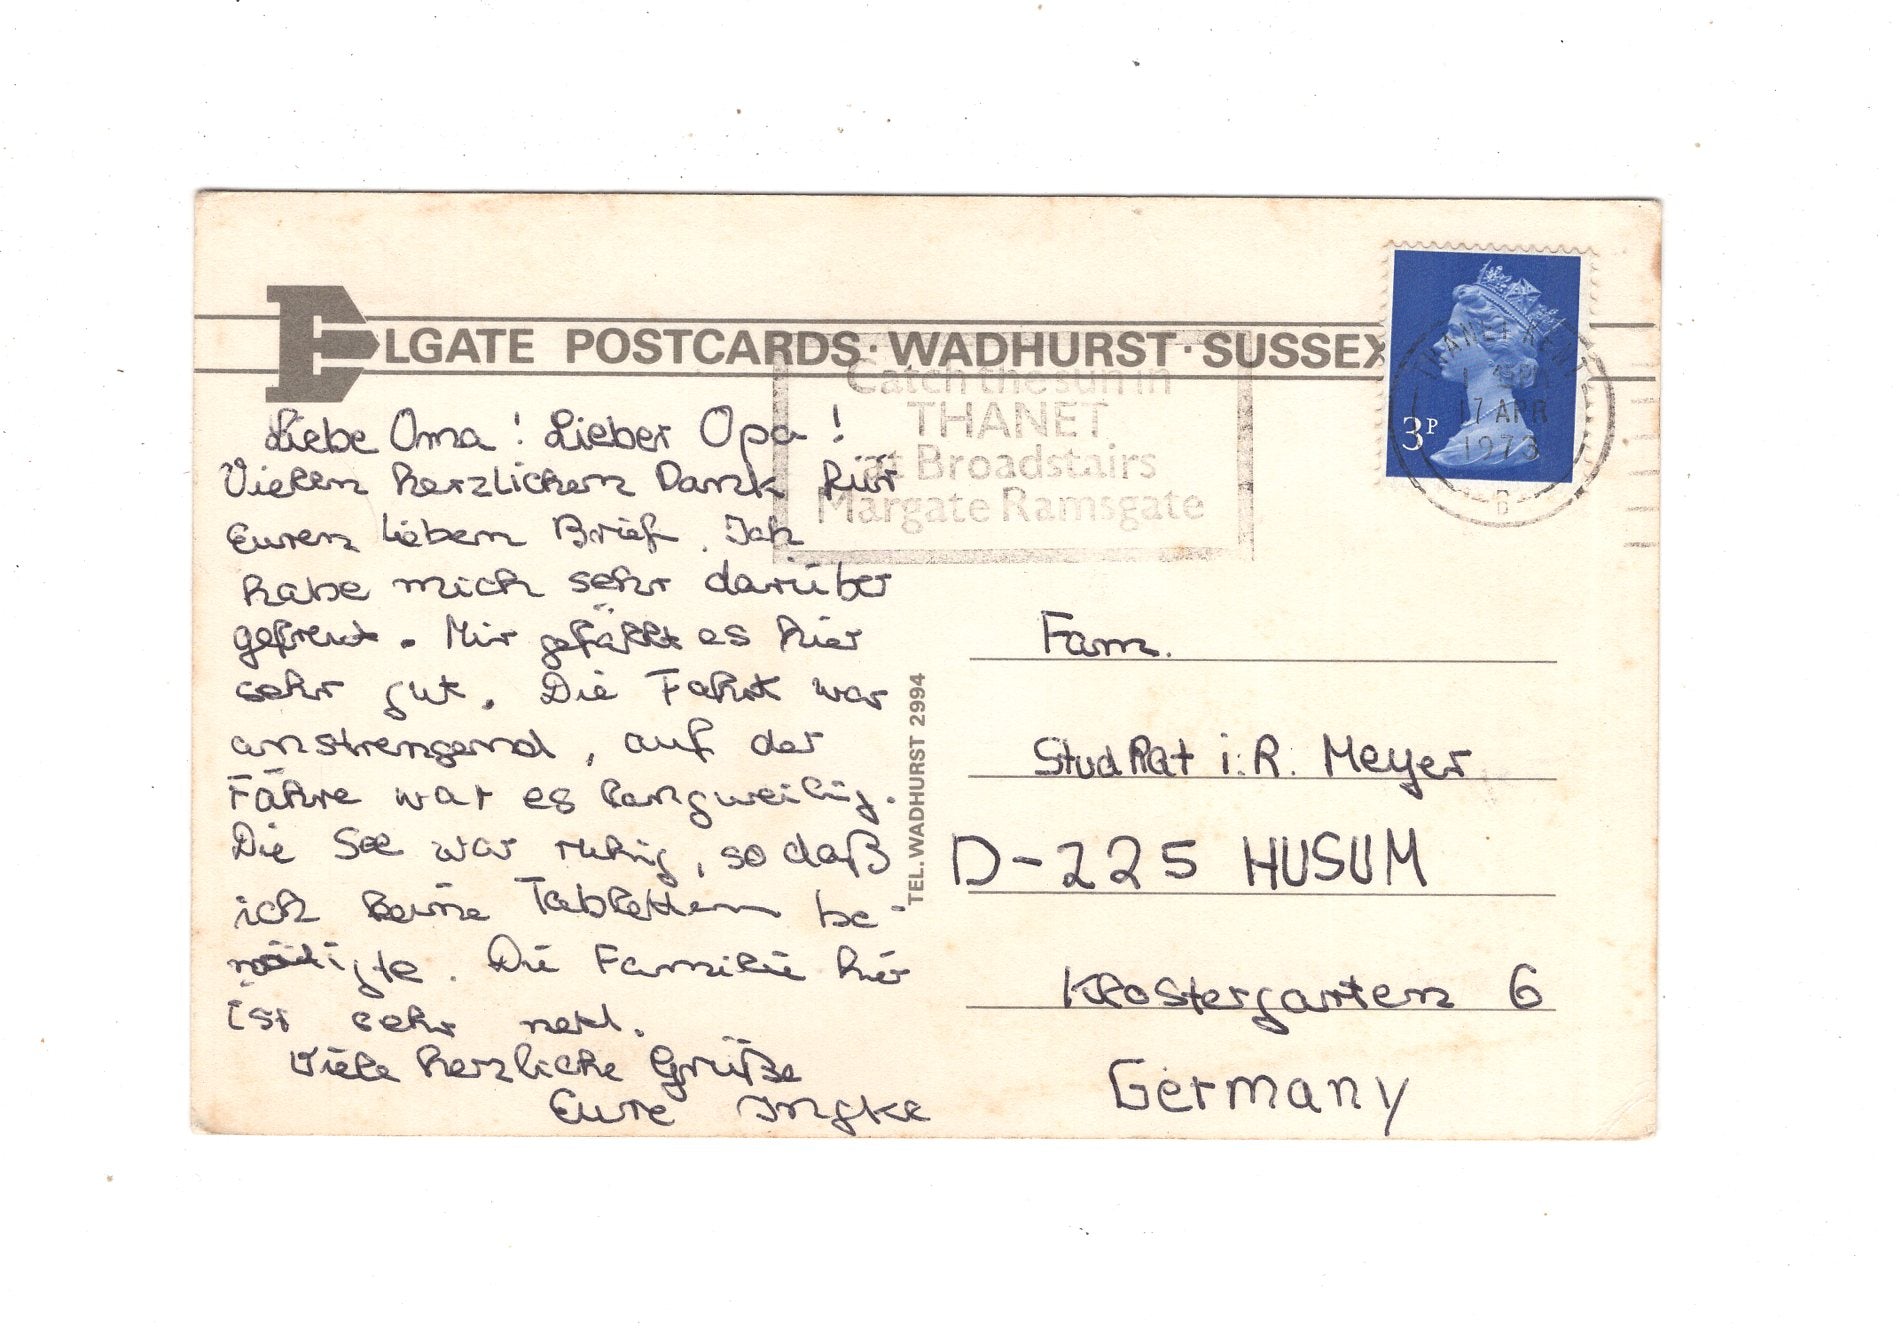 ELGATE POSTCARDS · WADHURST · SUSSEX
Catch the sun in
THANET
at Broadstairs
Margate Ramsgate
THANET KENT
17 APR
1973
B
3P
Liebe Oma! Lieber Opa!
Vielen herzlichen Dank für
Euren lieben Brief. Ich
habe mich sehr darüber
gefreut. Mir gefällt es hier
sehr gut. Die Fahrt war
anstrengend, auf der
Fähre war es langweilig.
Die See war ruhig, so daß
ich keine Tabletten be-
nötigte. Die Familie hier
ist sehr nett.
Viele herzliche Grüße
Eure Imke
TEL. WADHURST 2994
Fam.
StudRat i.R. Meyer
D-225 HUSUM
Klostergarten 6
Germany